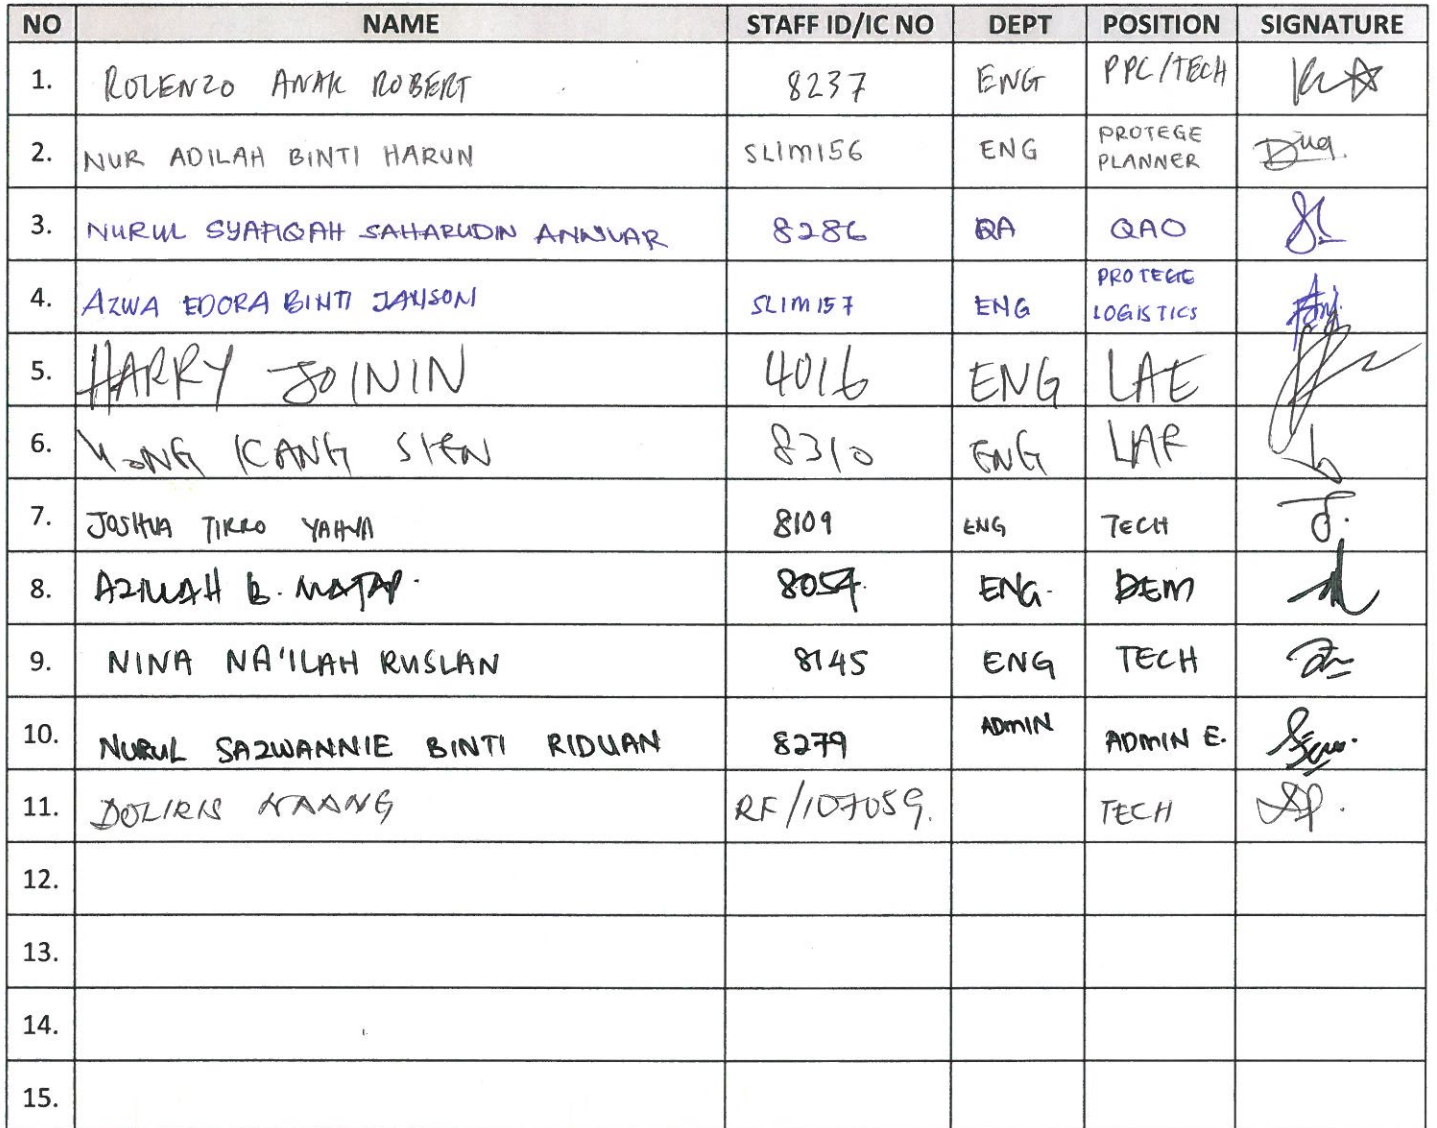 NO NAME STAFF ID/IC NO DEPT POSITION SIGNATURE
1. ROLENZO ANAK ROBERT 8237 ENG PPC/TECH
2. NUR ADILAH BINTI HARUN SLIM156 ENG PROTEGE PLANNER
3. NURUL SYAFIQAH SAHARUDIN ANNUAR 8286 QA QAO
4. AZWA EDORA BINTI JAUSON SLIM157 ENG PROTEGE LOGISTICS
5. HARRY JOININ 4016 ENG LAE
6. YONG KANG SIEN 8310 ENG LAE
7. JOSHUA TIRRO YAHYA 8109 ENG TECH
8. AZILLAH B. MATAP. 8054. ENG. DEM
9. NINA NA'ILAH RUSLAN 8145 ENG TECH
10. NURUL SAZWANNIE BINTI RIDUAN 8279 ADMIN ADMIN E.
11. DOLIRIS NAANG RF/107059. TECH
12.
13.
14.
15.